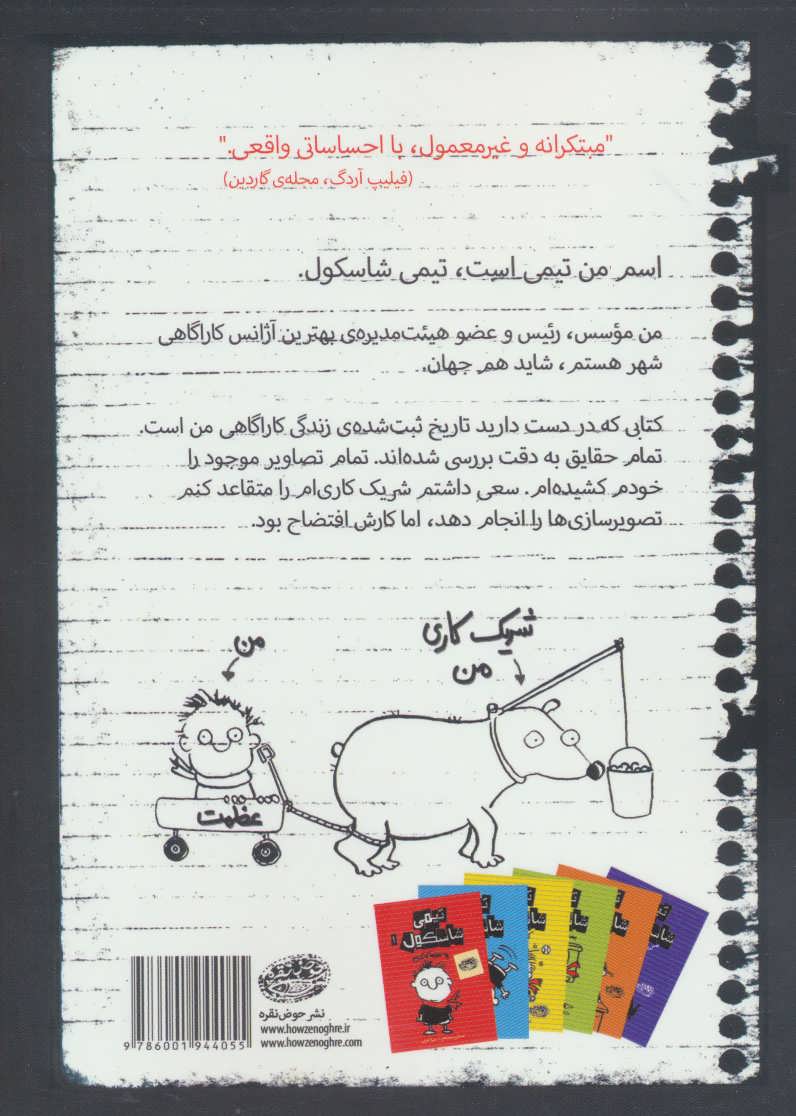 "مبتکرانه و غیرمعمول، با احساساتی واقعی."
(فیلیپ آردگ، مجله‌ی گاردین)
اسم من تیمی است، تیمی شاسکول.
من مؤسس، رئیس و عضو هیئت‌مدیره‌ی بهترین آژانس کاراگاهی
شهر هستم، شاید هم جهان.
کتابی که در دست دارید تاریخ ثبت‌شده‌ی زندگی کاراگاهی من است.
تمام حقایق به دقت بررسی شده‌اند. تمام تصاویر موجود را
خودم کشیده‌ام. سعی داشتم شریک کاری‌ام را متقاعد کنم
تصویرسازی‌ها را انجام دهد، اما کارش افتضاح بود.
شریک کاری
من
من
عظمت
تیمی
شاسکول ۱
نشر حوض‌نقره
www.howzenoghre.ir
www.howzenoghre.com
9 786001 944055